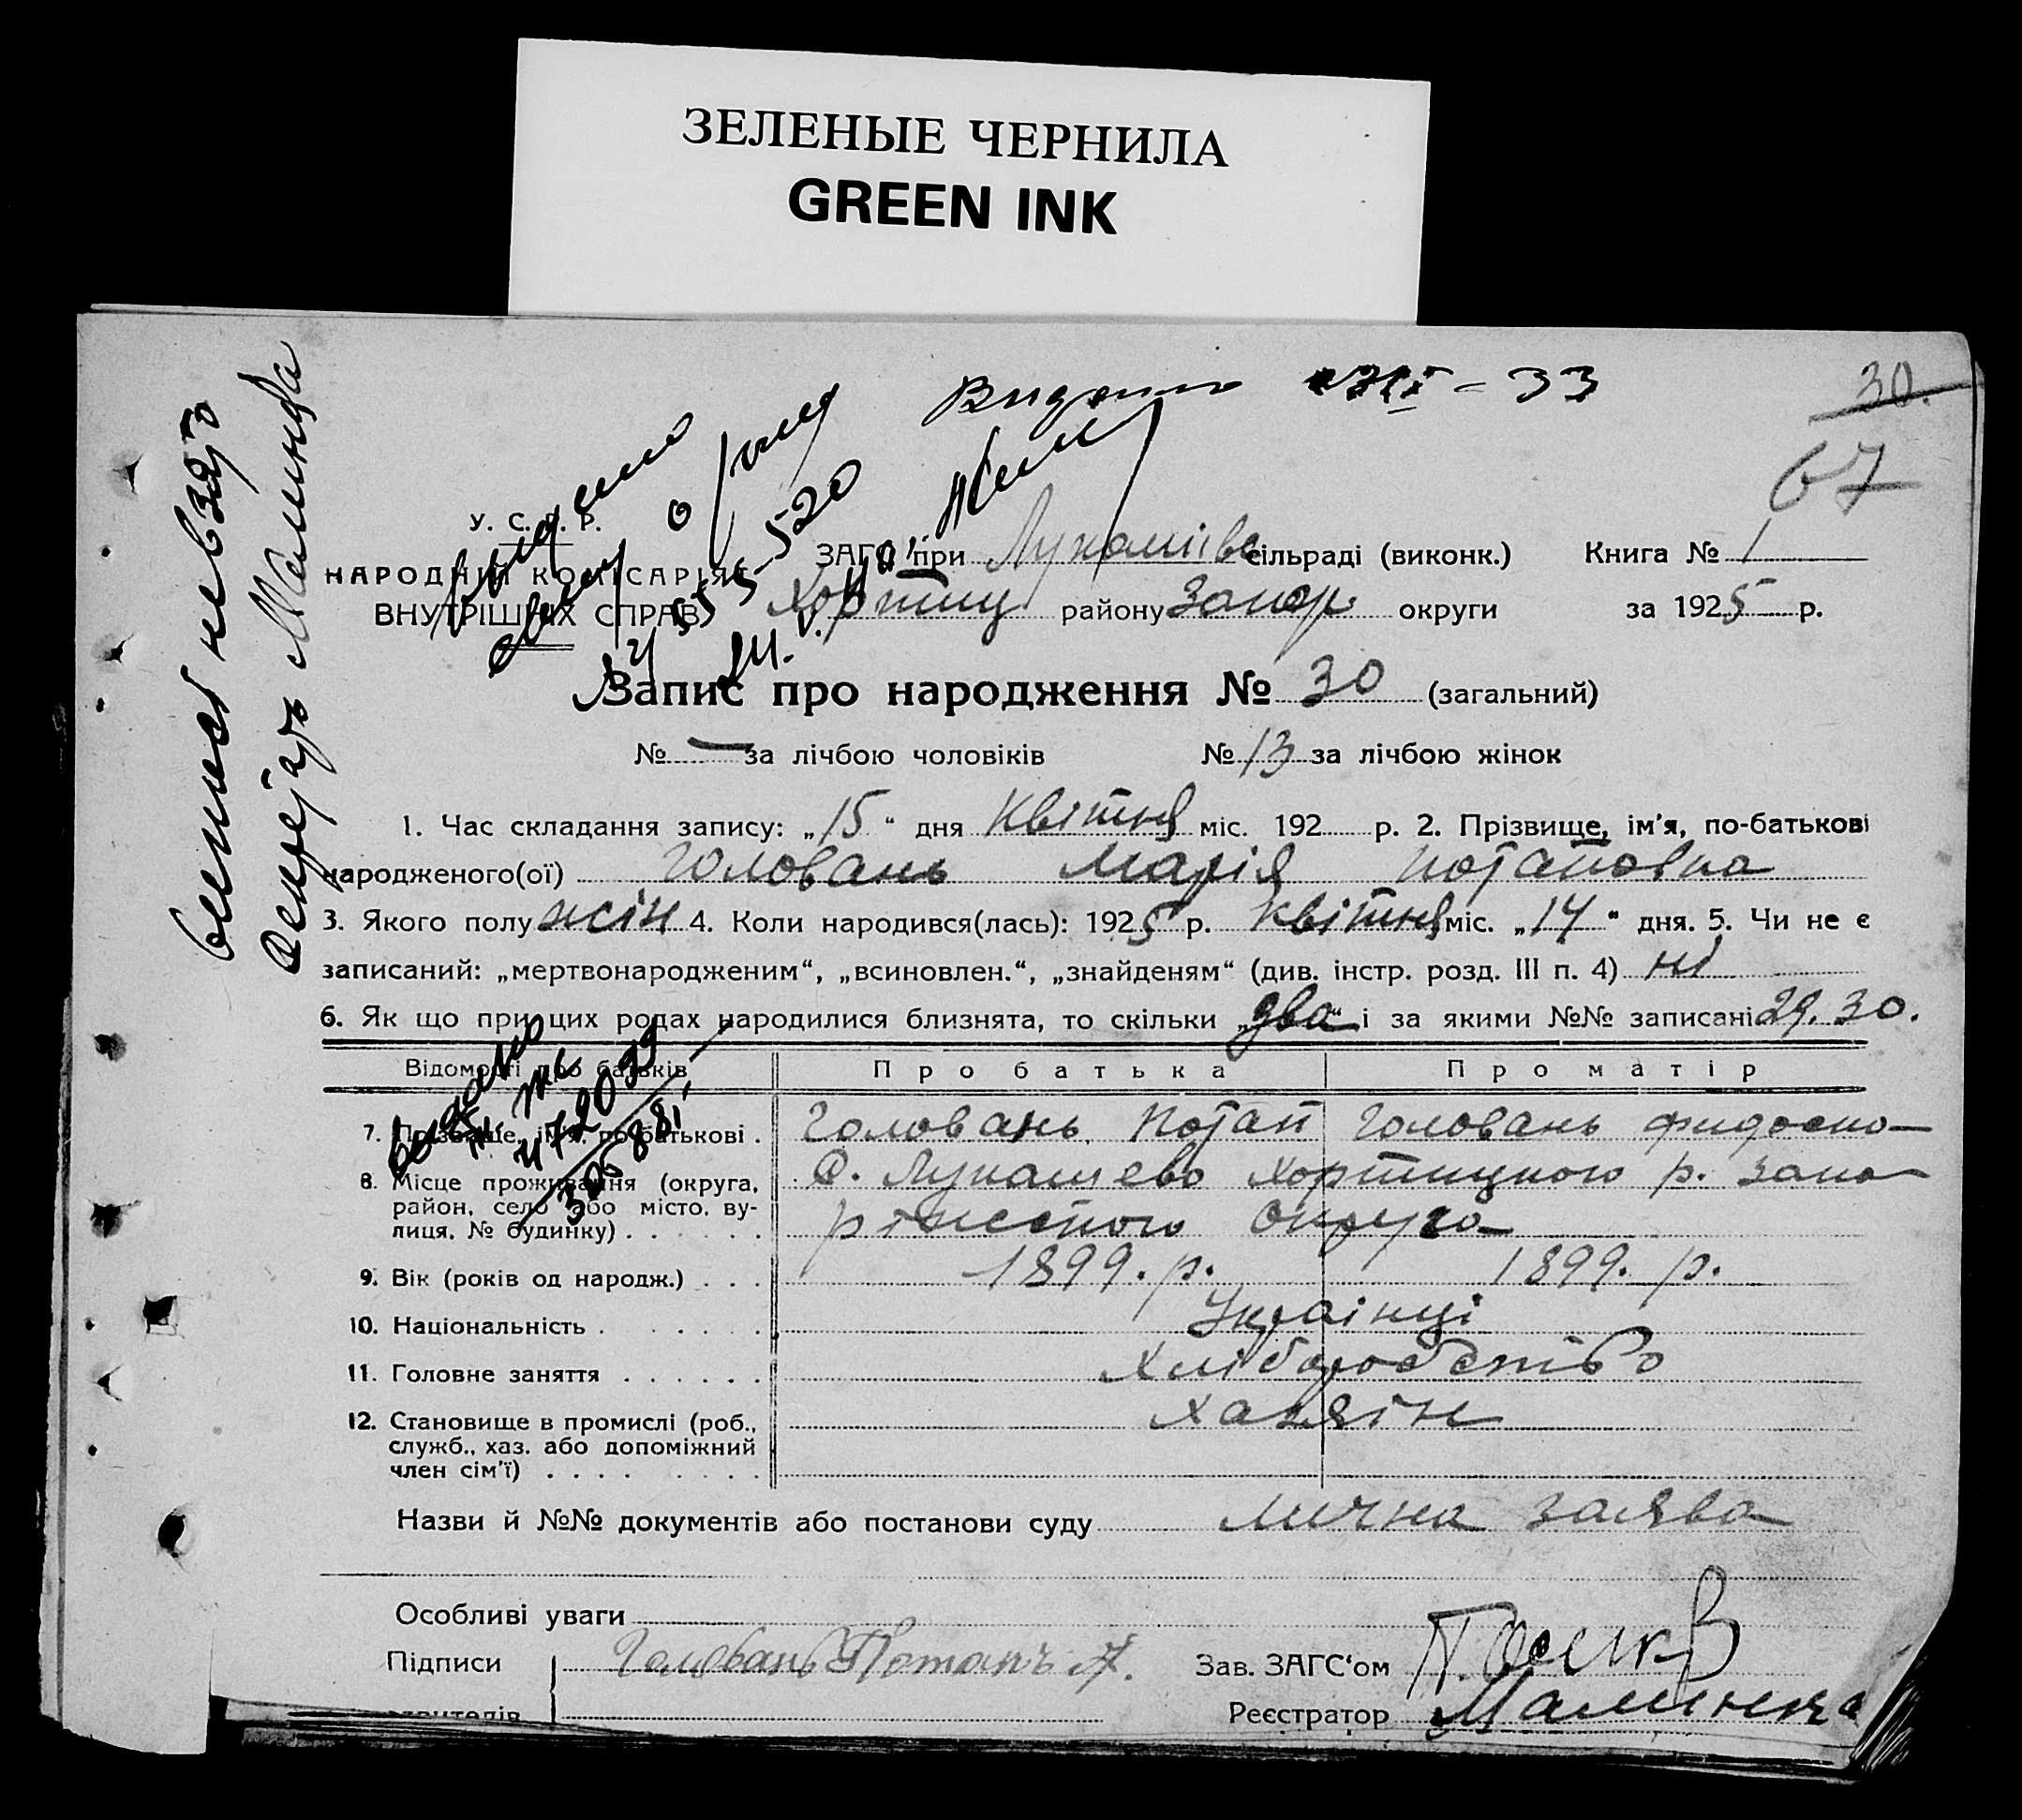 ЗЕЛЕНЫЕ ЧЕРНИЛА
GREEN INK
Видано - 33
30.
67
У. С. Р. Р.
НАРОДНІЙ КОМІСАРІЯТ
ВНУТРІШНІХ СПРАВ
555520
ЗАГС при Лукашівс сільраді (виконк.) Книга № 1
Хортиц району Запор округи за 1925 р.
Запис про народження № 30 (загальний)
№ — за лічбою чоловіків № 13 за лічбою жінок
1. Час складання запису: „15“ дня Квітня міс. 192 р. 2. Прізвище, ім'я, по-батькові
народженого(ої) Головань Марія Потаповна
3. Якого полу жін 4. Коли народився(лась): 1925 р. Квітня міс. „14“ дня. 5. Чи не є
записаний: „мертвонародженим“, „всиновлен.“, „знайденям“ (див. інстр. розд. III п. 4) ні
6. Як що при цих родах народилися близнята, то скільки „два“ і за якими №№ записані 29. 30.
Відомості про батьків Про батька Про матір
7. Прізвище, ім'я, по-батькові . Головань Потап Головань Фидосио
8. Місце проживання (округа, район, село або місто, вулиця, № будинку) . . . . . . С. Лукашево Хортицкого р. Запо
ріжского Округа
9. Вік (років од народж.) . . . 1899. р. 1899. р.
10. Національність . . . . . . Українці
11. Головне заняття . . . . . . Хліборобство
12. Становище в промислі (роб., Хазяін
служб., хаз. або допоміжний
член сім'ї) . . . . . . . .
Назви й №№ документів або постанови суду лична заява
Особливі уваги
Підписи Головань Потапъ А. Зав. ЗАГС‘ом
Реєстратор Малинка